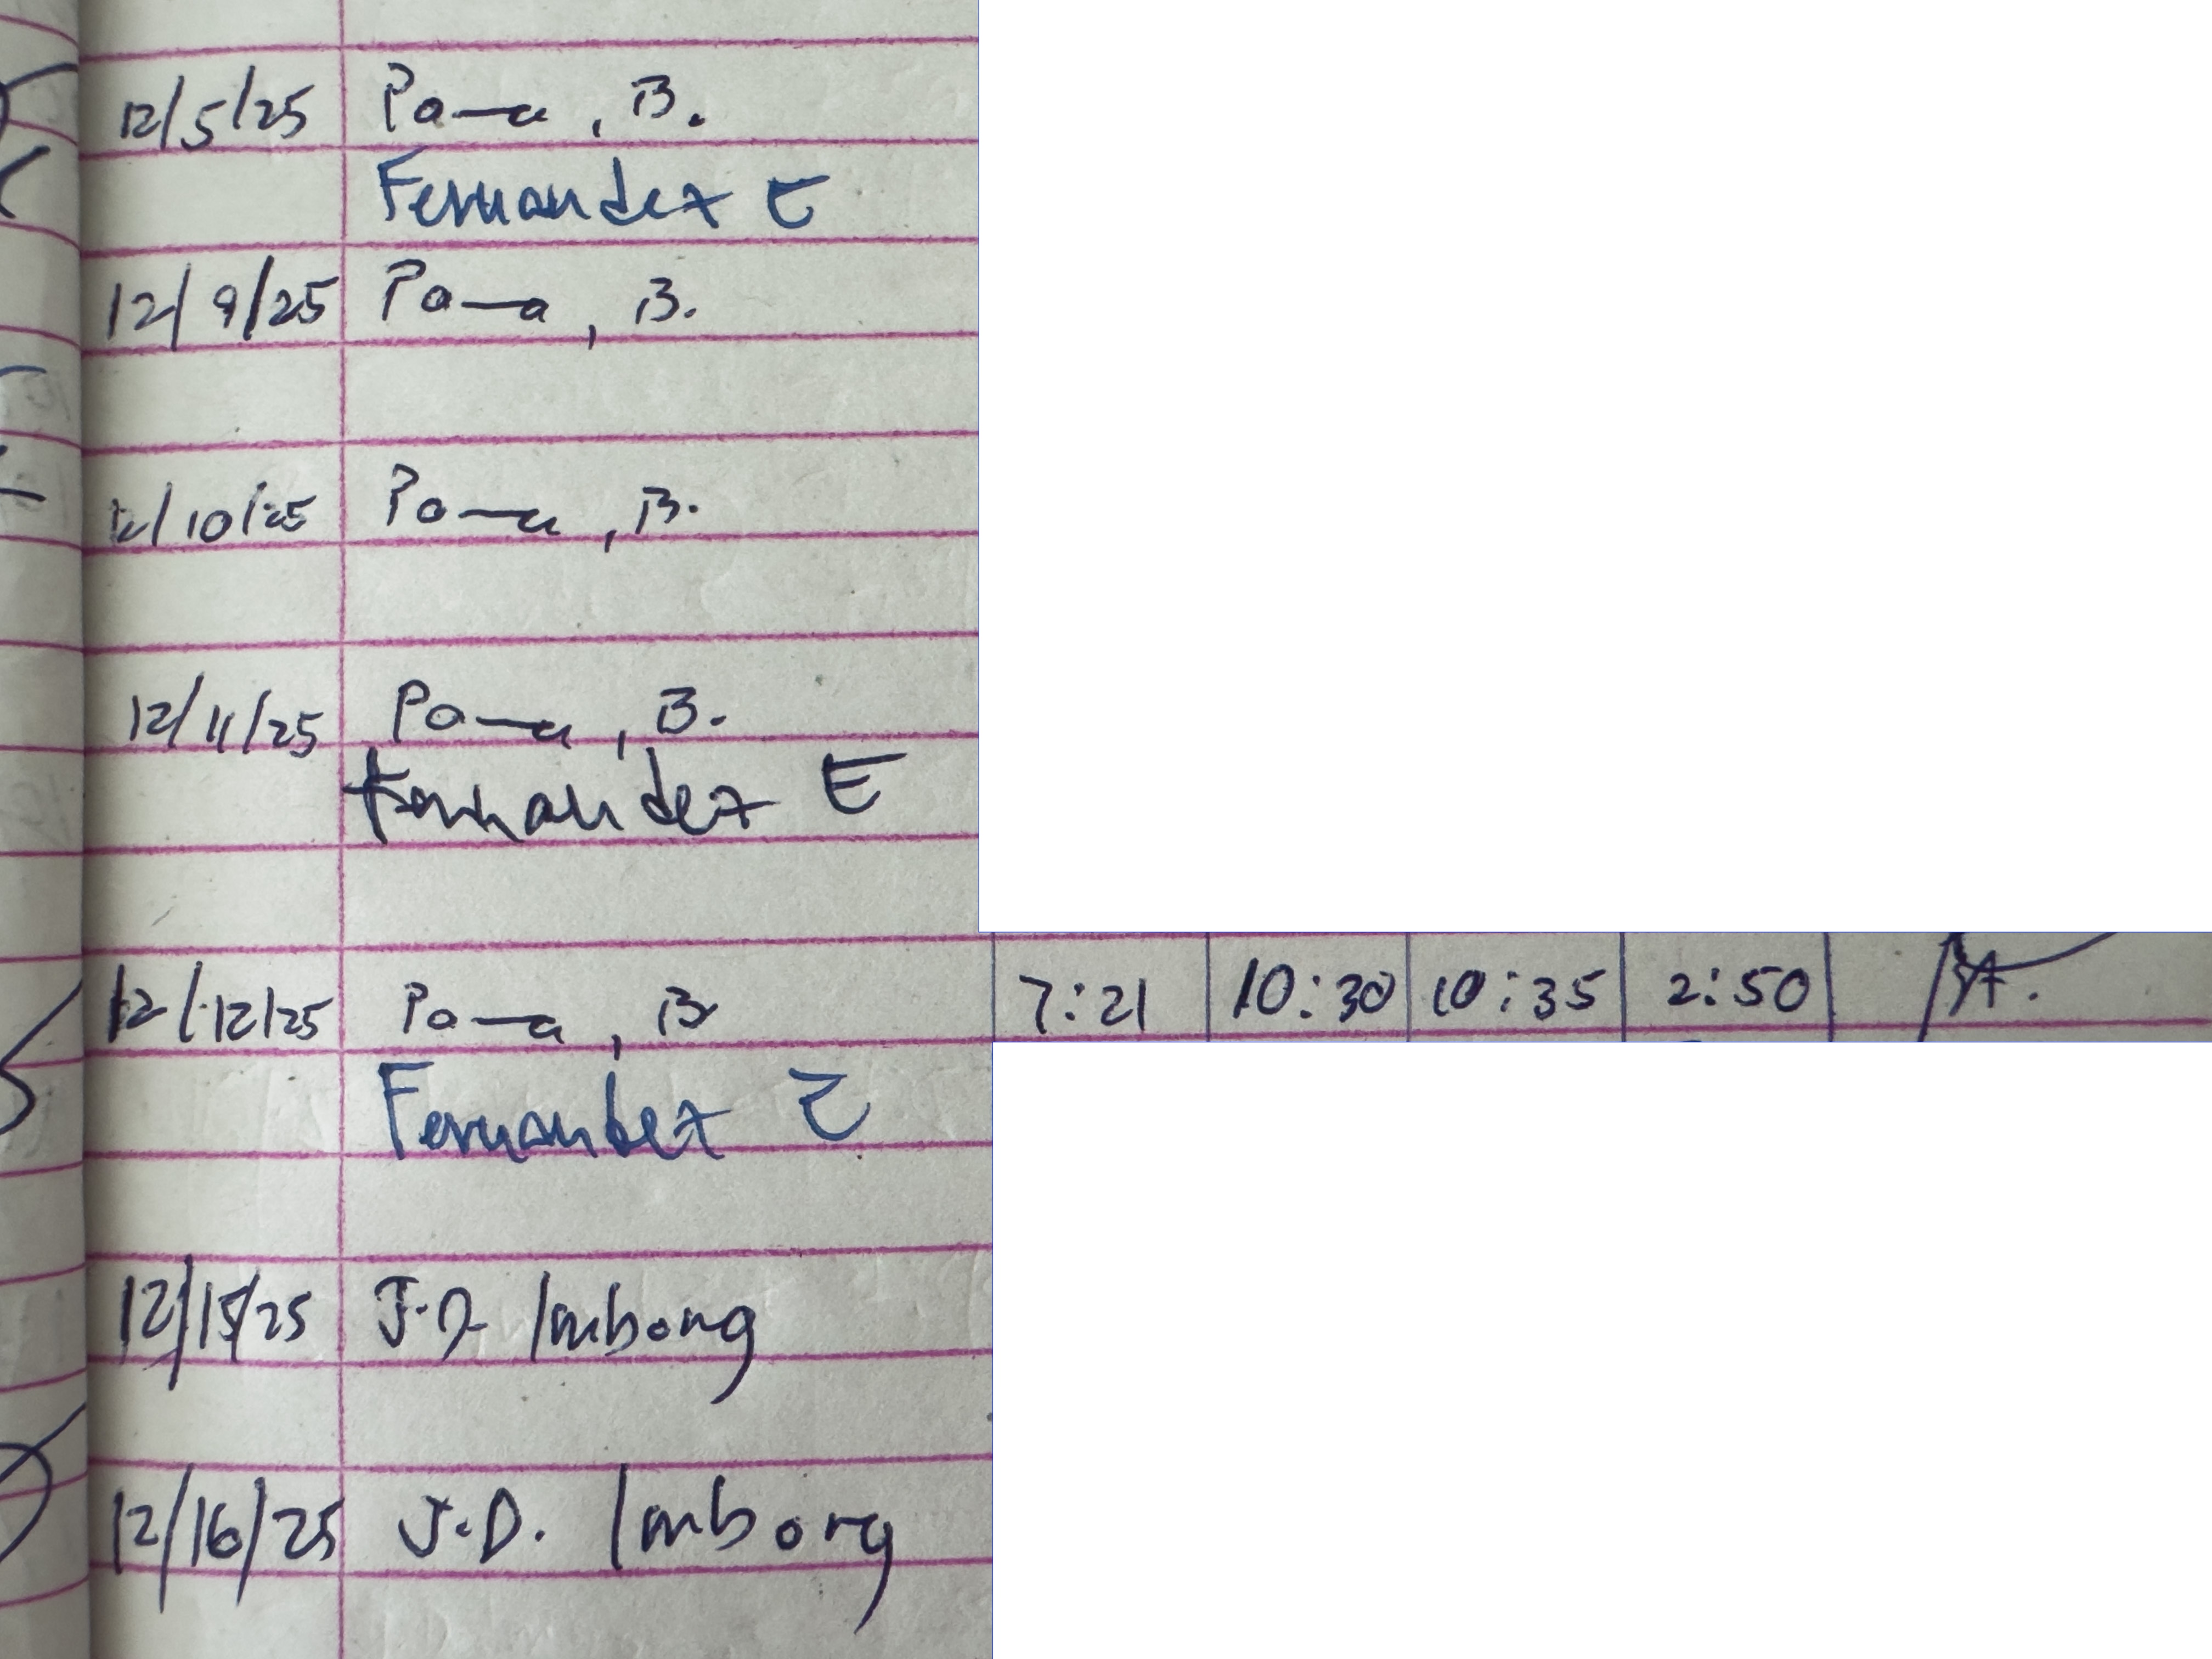 12/5/25 Pa—a, B.
Fernandez E
12/9/25 Pa—a, B.
12/10/25 Pa—a, B.
12/11/25 Pa—a, B.
Fernandez E
12/12/25 Pa—a, B 7:21 10:30 10:35 2:50
Fernandez E
12/15/25 J.D. Imbong
12/16/25 J.D. Imbong